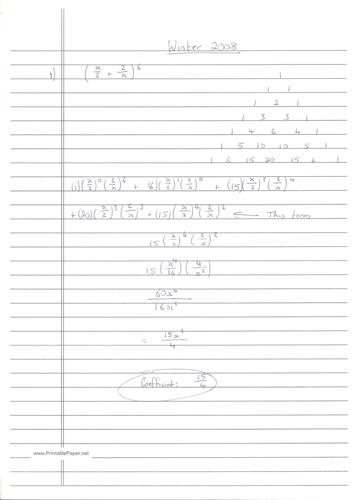 Winter 2008
1) (x/2 + 2/x)^6
1
1 1
1 2 1
1 3 3 1
1 4 6 4 1
1 5 10 10 5 1
1 6 15 20 15 6 1
(1)(x/2)^0(2/x)^6 + (6)(x/2)^1(2/x)^5 + (15)(x/2)^2(2/x)^4
+(20)(x/2)^3(2/x)^3 + (15)(x/2)^4(2/x)^2 ← This term
15(x/2)^4(2/x)^2
15(x^4/16)(4/x^2)
60x^4/16x^2
= 15x^2/4
Coefficient: 15/4
www.PrintablePaper.net